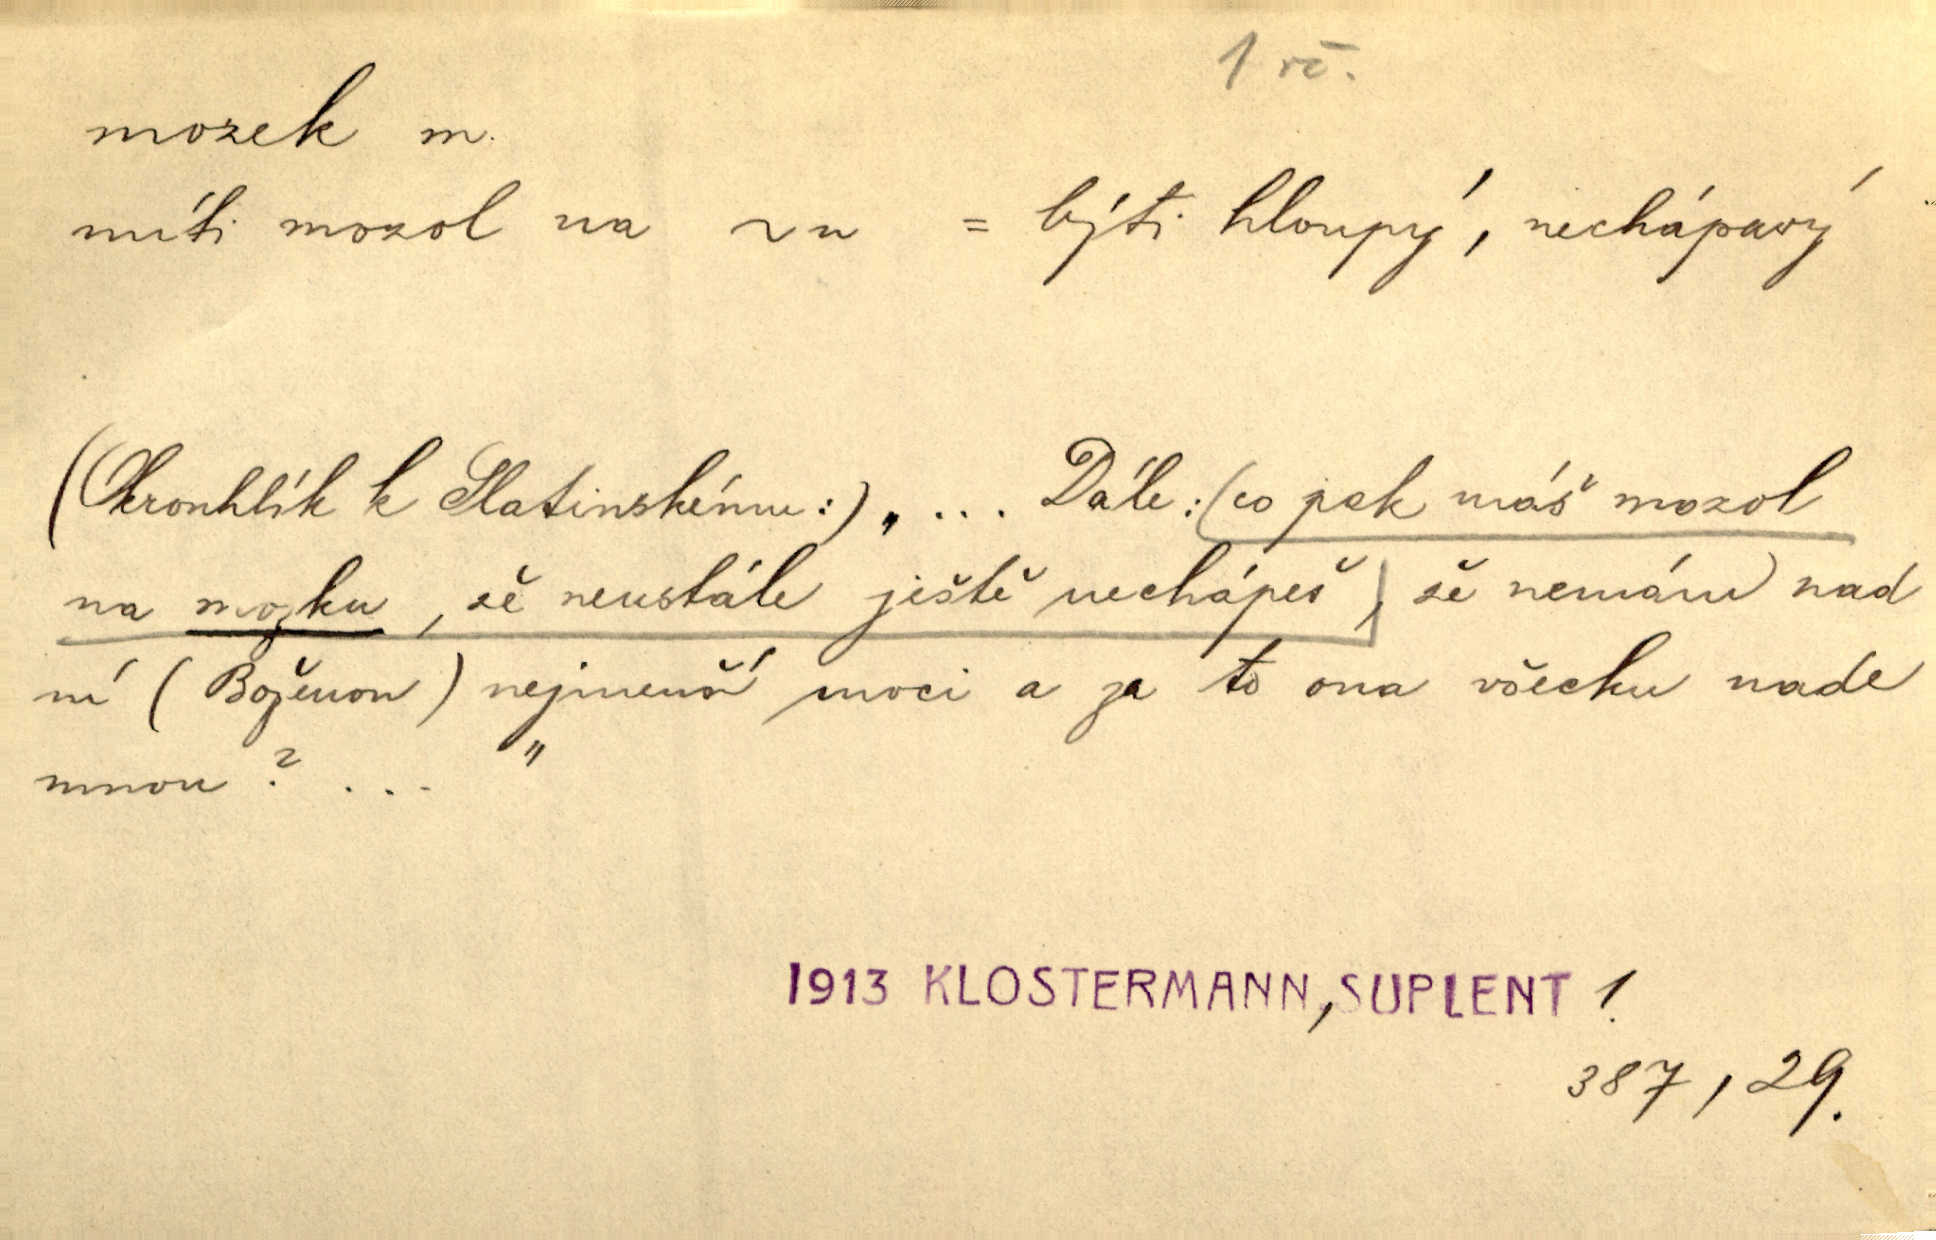 1 rč.
mozek m.
míti mozol na ~u = býti hloupý, nechápavý
(Okrouhlík k Slatinskému:) „ ... Dále: (co pak máš mozol
na mozku, že neustále ještě nechápeš), že nemám nad
ní (Boženou) nejmenší moci a za to ona všecku nade
mnou? ... "
1913 KLOSTERMANN, SUPLENT 1.
387, 29.